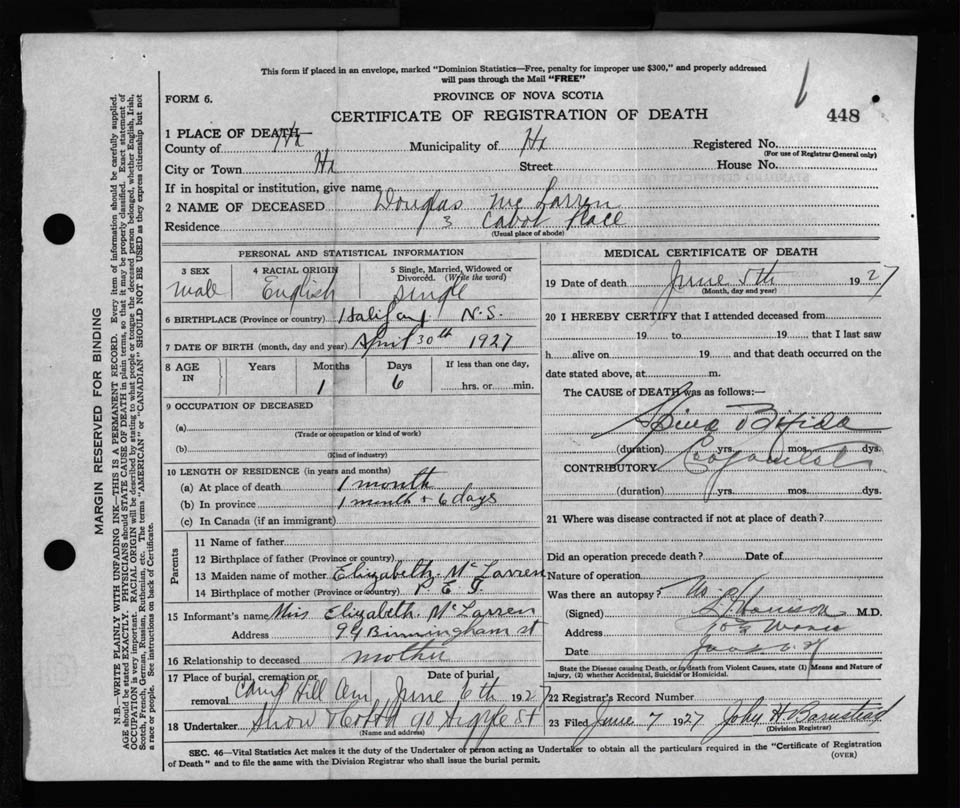 This form if placed in an envelope, marked "Dominion Statistics—Free, penalty for improper use $300," and properly addressed
will pass through the Mail "FREE"
FORM 6.
PROVINCE OF NOVA SCOTIA
CERTIFICATE OF REGISTRATION OF DEATH
448
1 PLACE OF DEATH
County of Hx Municipality of Hx Registered No.
(For use of Registrar General only)
City or Town Hx Street House No.
If in hospital or institution, give name
2 NAME OF DECEASED Douglas McLarren
Residence 3 Cabot Place
(Usual place of abode)
PERSONAL AND STATISTICAL INFORMATION
3 SEX 4 RACIAL ORIGIN 5 Single, Married, Widowed or
Divorced. (Write the word)
male English single
6 BIRTHPLACE (Province or country) Halifax N.S.
7 DATE OF BIRTH (month, day and year) April 30th 1927
8 AGE IN Years Months Days If less than one day,
1 6 hrs. or min.
9 OCCUPATION OF DECEASED
(a)
(Trade or occupation or kind of work)
(b)
(Kind of industry)
10 LENGTH OF RESIDENCE (in years and months)
(a) At place of death 1 month
(b) In province 1 month + 6 days
(c) In Canada (if an immigrant)
Parents
11 Name of father
12 Birthplace of father (Province or country)
13 Maiden name of mother Elizabeth McLarren
14 Birthplace of mother (Province or country) P.E.I.
15 Informant's name Miss Elizabeth McLarren
Address 99 Birmingham st
16 Relationship to deceased mother
17 Place of burial, cremation or Date of burial
removal Camp Hill Cem June 6th 1927
18 Undertaker Snow 90 Argyle St
(Name and address)
MEDICAL CERTIFICATE OF DEATH
19 Date of death June 5th 1927
(Month, day and year)
20 I HEREBY CERTIFY that I attended deceased from
19 to 19 that I last saw
h alive on 19 and that death occurred on the
date stated above, at m.
The CAUSE of DEATH was as follows:—
Spina Bifida
(duration) yrs. mos. dys.
CONTRIBUTORY Congenital
(duration) yrs. mos. dys.
21 Where was disease contracted if not at place of death?
Did an operation precede death? Date of
Nature of operation
Was there an autopsy? No
(Signed) M.D.
Address
Date
State the Disease causing Death, or in death from Violent Causes, state (1) Means and Nature of
Injury, (2) whether Accidental, Suicidal or Homicidal.
22 Registrar's Record Number
23 Filed June 7 1927 John H Barnstead
(Division Registrar)
SEC. 46—Vital Statistics Act makes it the duty of the Undertaker or person acting as Undertaker to obtain all the particulars required in the "Certificate of Registration
of Death" and to file the same with the Division Registrar who shall issue the burial permit.
(OVER)
MARGIN RESERVED FOR BINDING
N.B.—WRITE PLAINLY WITH UNFADING INK—THIS IS A PERMANENT RECORD. Every item of information should be carefully supplied.
AGE should be stated EXACTLY. PHYSICIANS should STATE CAUSE OF DEATH in plain terms, so that it may be properly classified. Exact statement of
OCCUPATION is very important. RACIAL ORIGIN will be described by stating to what people or tongue the deceased person belonged, whether English, Irish,
Scotch, French, German, Russian, Ruthenian, etc. The terms "AMERICAN" or "CANADIAN" SHOULD NOT BE USED as they express citizenship but not
a race or people. See instructions on back of Certificate.